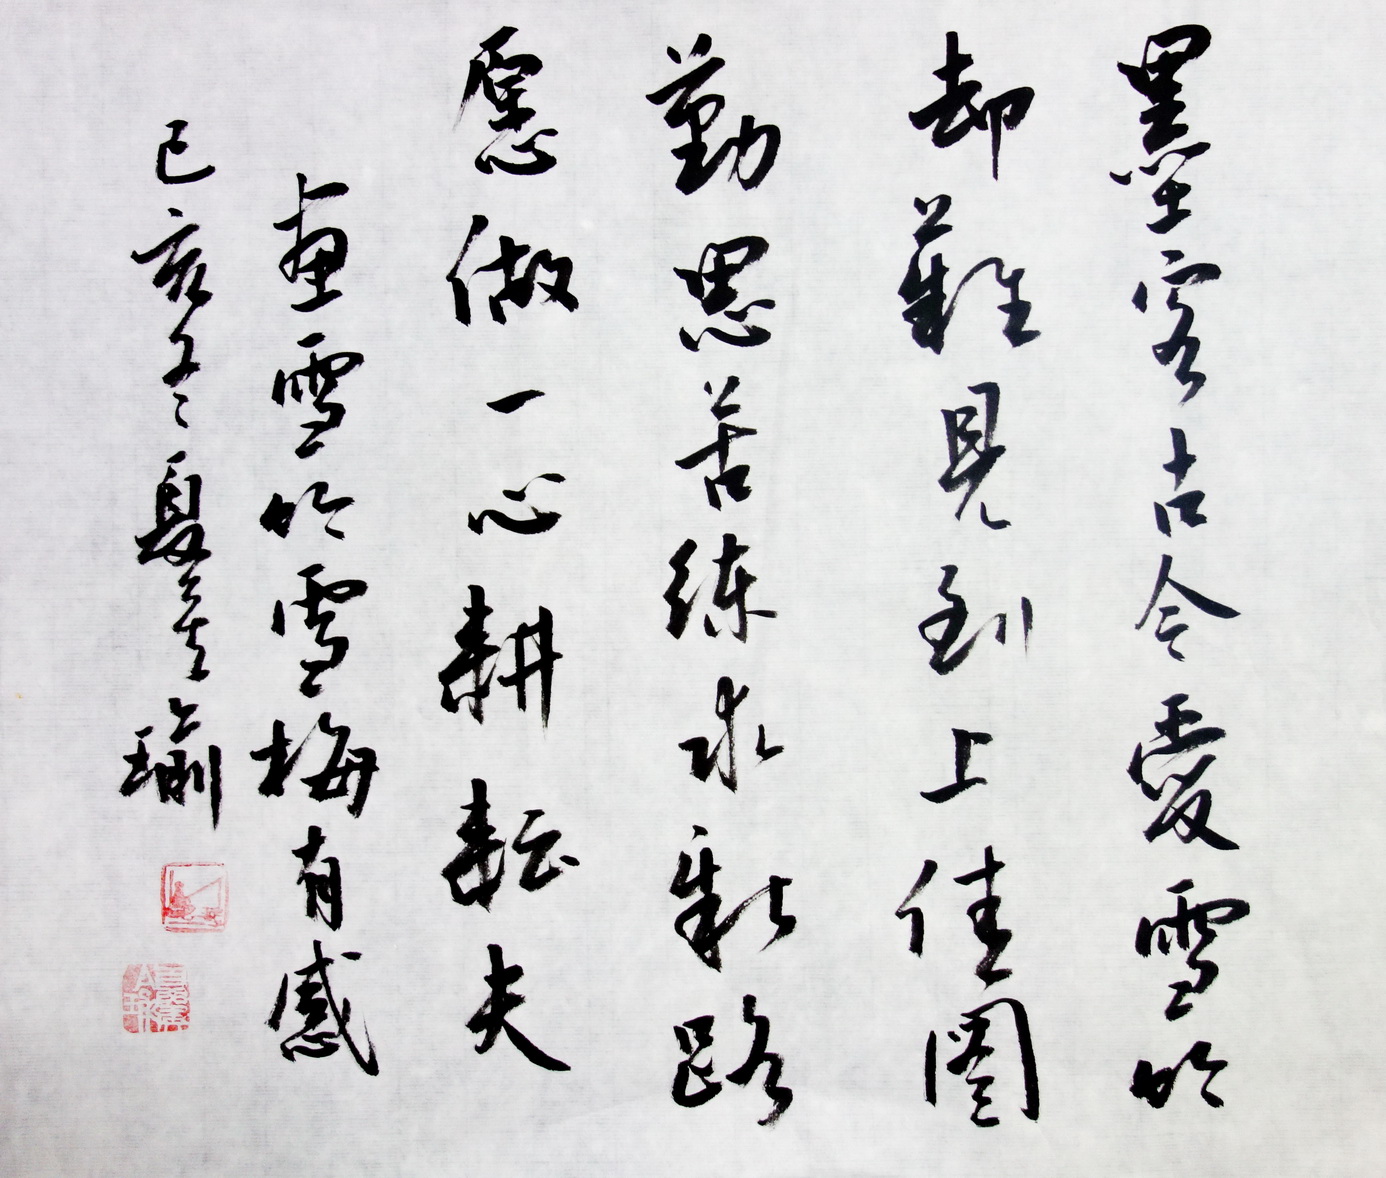 墨客古今愛雪竹
却難見到上佳圖
勤思苦練求新路
愿做一心耕耘夫
畫雪竹雪梅有感
己亥冬夏瑜